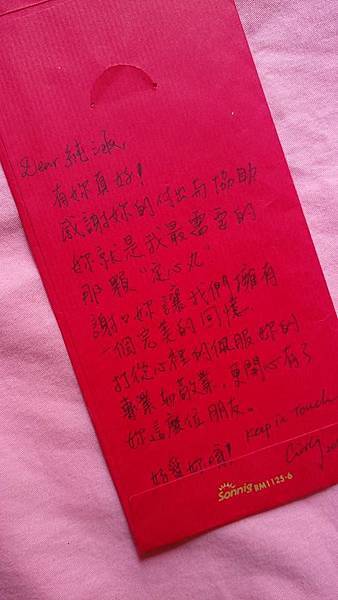 Dear 純淑,
有妳真好!
感謝妳的付出与協助
妳就是我最需要的
那顆"定心丸"
謝謝妳讓我們擁有
一個完美的回憶
打從心裡的佩服妳的
專業和敬業,更開心有了
妳這麼位朋友。
好愛妳哦! Keep in Touch
Cindy
sonnis BM1125-6